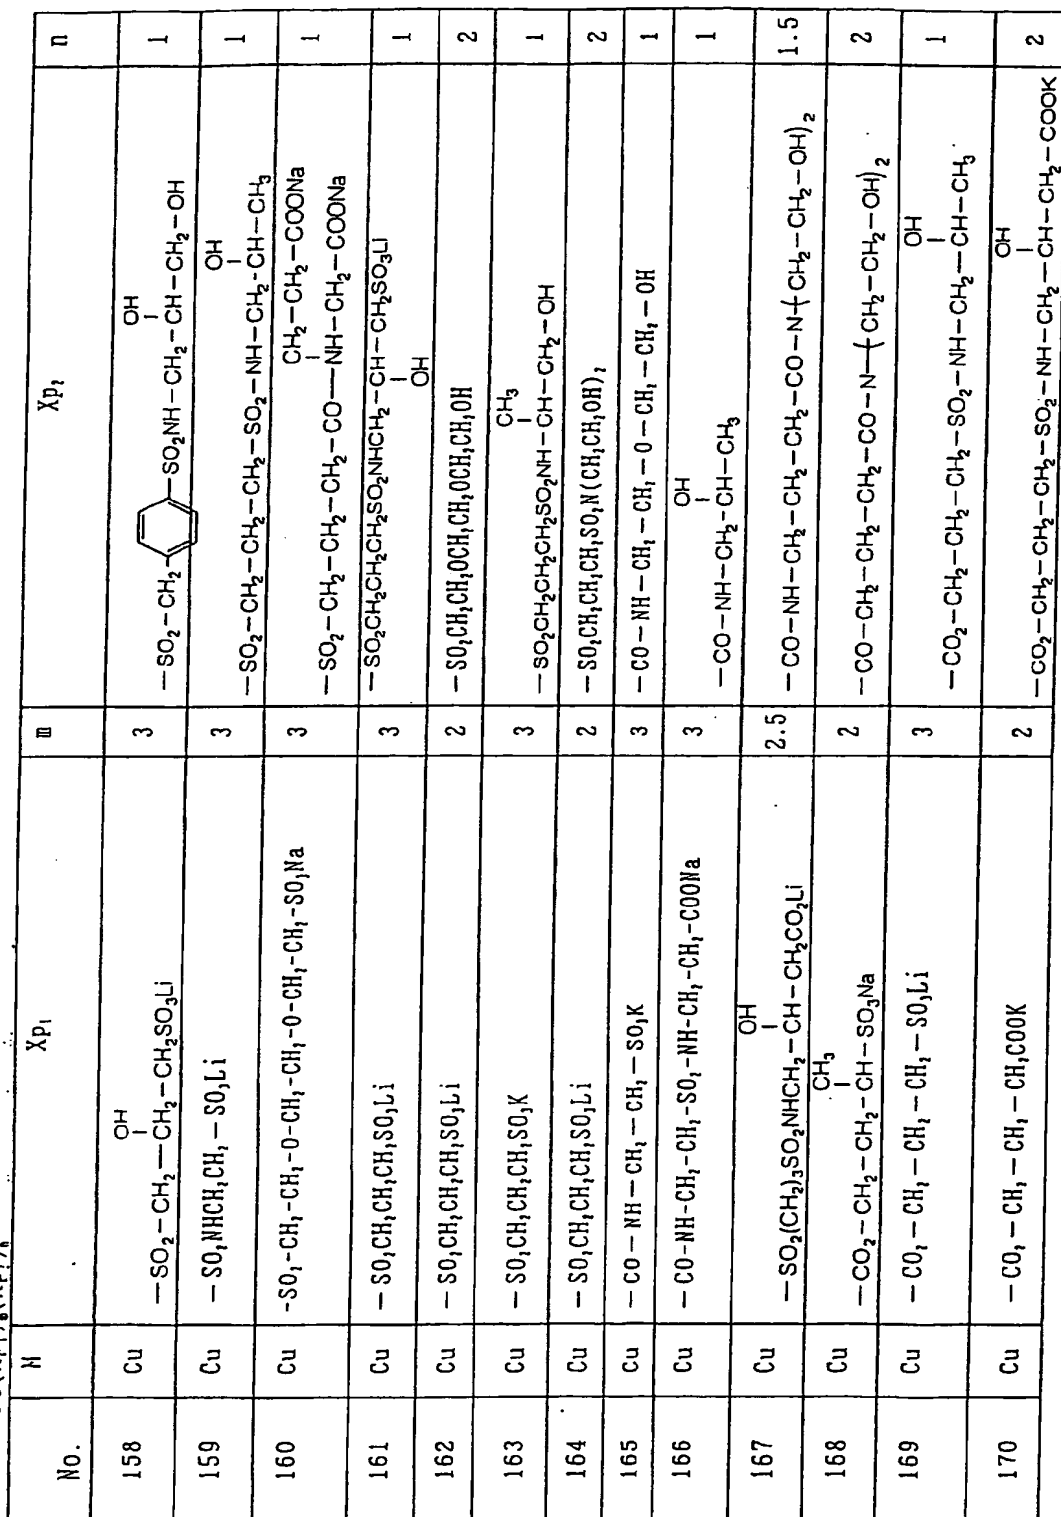 No. M Xp₁ m Xp₂ n
OH OH
158 Cu —SO₂—CH₂—CH₂—CH₂SO₃Li 3 —SO₂—CH₂— —SO₂NH—CH₂—CH—CH₂—OH 1
OH
159 Cu —SO₂NHCH₂CH₂—SO₃Li 3 —SO₂—CH₂—CH₂—CH₂—SO₂—NH—CH₂—CH—CH₃ 1
CH₂—CH₂—COONa
160 Cu -SO₂-CH₂-CH₂-O-CH₂-CH₂-O-CH₂-CH₂-SO₃Na 3 —SO₂—CH₂—CH₂—CH₂—CO—NH—CH₂—CH₂—COONa 1
161 Cu —SO₂CH₂CH₂CH₂SO₃Li 3 —SO₂CH₂CH₂CH₂SO₂NHCH₂—CH—CH₂SO₃Li 1
OH
162 Cu —SO₂CH₂CH₂CH₂SO₃Li 2 —SO₂CH₂CH₂OCH₂CH₂OCH₂CH₂OH 2
CH₃
163 Cu —SO₂CH₂CH₂CH₂SO₃K 3 —SO₂CH₂CH₂CH₂SO₂NH—CH—CH₂—OH 1
164 Cu —SO₂CH₂CH₂CH₂SO₃Li 2 —SO₂CH₂CH₂CH₂SO₂N(CH₂CH₂OH)₂ 2
165 Cu —CO—NH—CH₂—CH₂—SO₃K 3 —CO—NH—CH₂—CH₂—O—CH₂—CH₂—OH 1
OH
166 Cu —CO-NH-CH₂-CH₂-SO₂-NH-CH₂-CH₂-COONa 3 —CO—NH—CH₂—CH—CH₃ 1
OH
167 Cu —SO₂(CH₂)₃SO₂NHCH₂—CH—CH₂CO₂Li 2.5 —CO—NH—CH₂—CH₂—CH₂—CO—N(CH₂—CH₂—OH)₂ 1.5
CH₃
168 Cu —CO₂—CH₂—CH₂—CH—SO₃Na 2 —CO—CH₂—CH₂—CH₂—CO—N(CH₂—CH₂—OH)₂ 2
OH
169 Cu —CO₂—CH₂—CH₂—CH₂—SO₃Li 3 —CO₂—CH₂—CH₂—CH₂—SO₂—NH—CH₂—CH—CH₃ 1
OH
170 Cu —CO₂—CH₂—CH₂—CH₂COOK 2 —CO₂—CH₂—CH₂—CH₂—SO₂—NH—CH₂—CH—CH₂—COOK 2